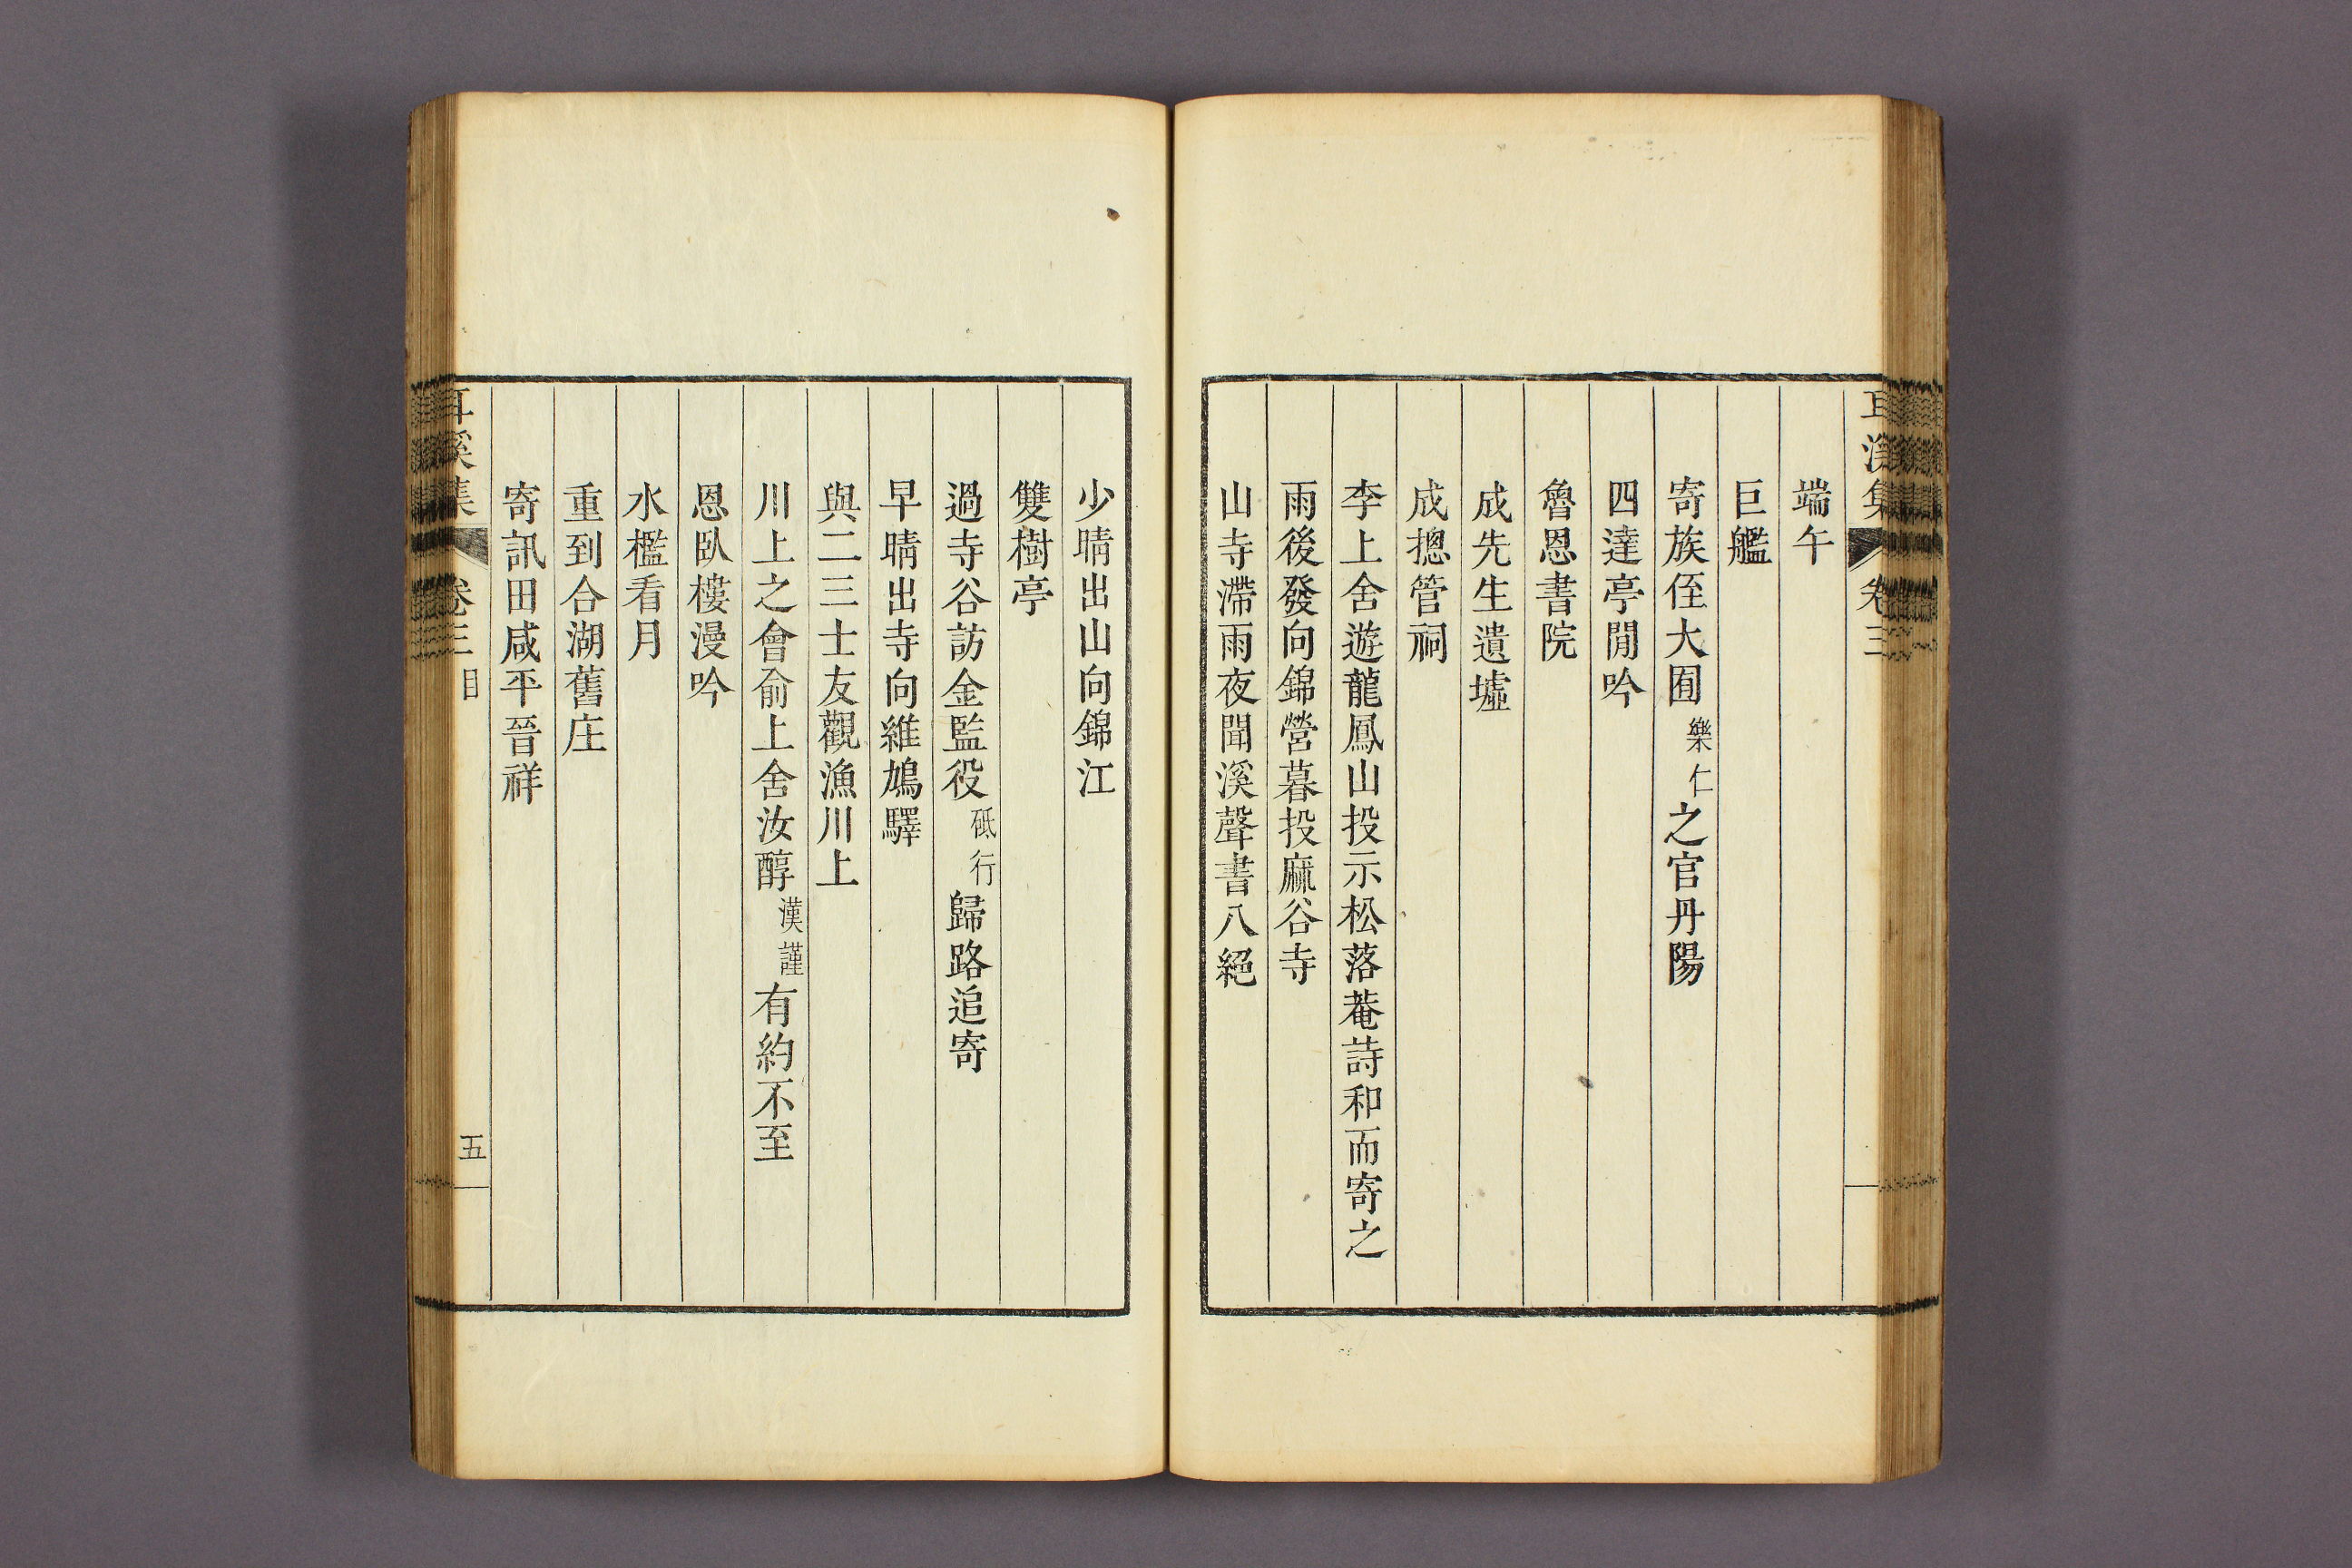 耳溪集 卷三
端午
巨艦
寄族侄大囿樂仁之官丹陽
四達亭閒吟
魯恩書院
成先生遺墟
成摠管祠
李上舍遊龍鳳山投示松落菴詩和而寄之
雨後發向錦營暮投麻谷寺
山寺滯雨夜聞溪聲書八絕
少晴出山向錦江
雙樹亭
過寺谷訪金監役砥行歸路追寄
早晴出寺向維鳩驛
與二三士友觀漁川上
川上之會俞上舍汝醇漢謹有約不至
恩臥樓漫吟
水檻看月
重到合湖舊庄
寄訊田咸平晉祥
耳溪集 卷三 目 五